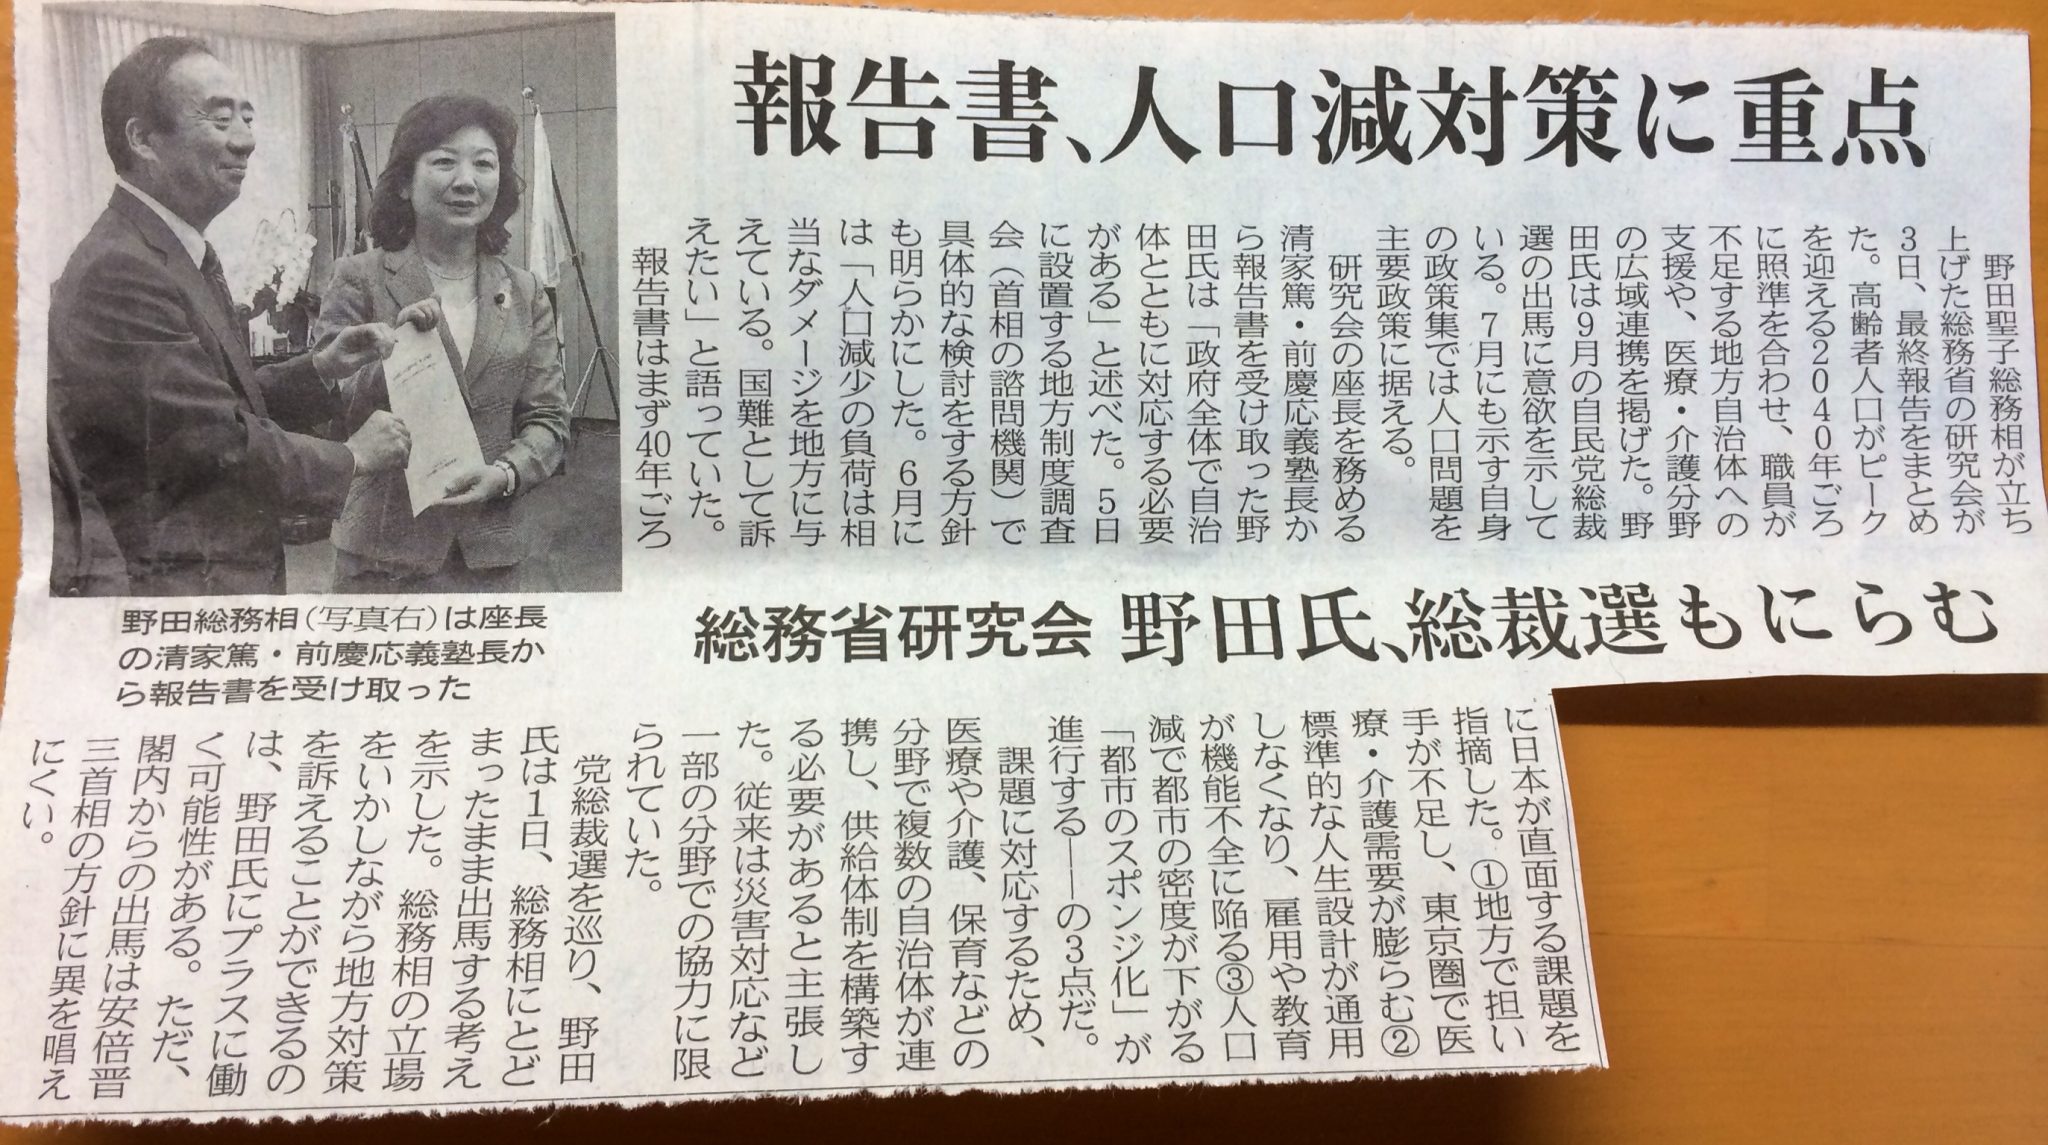 報告書、人口減対策に重点
総務省研究会 野田氏、総裁選もにらむ
野田聖子総務相が立ち
上げた総務省の研究会が
3日、最終報告をまとめ
た。高齢者人口がピーク
を迎える2040年ごろ
に照準を合わせ、職員が
不足する地方自治体への
支援や、医療・介護分野
の広域連携を掲げた。野
田氏は9月の自民党総裁
選の出馬に意欲を示して
いる。7月にも示す自身
の政策集では人口問題を
主要政策に据える。
研究会の座長を務める
清家篤・前慶応義塾長か
ら報告書を受け取った野
田氏は「政府全体で自治
体とともに対応する必要
がある」と述べた。5日
に設置する地方制度調査
会（首相の諮問機関）で
具体的な検討をする方針
も明らかにした。6月に
は「人口減少の負荷は相
当なダメージを地方に与
えている。国難として訴
えたい」と語っていた。
報告書はまず40年ごろ
に日本が直面する課題を
指摘した。①地方で担い
手が不足し、東京圏で医
療・介護需要が膨らむ②
標準的な人生設計が通用
しなくなり、雇用や教育
が機能不全に陥る③人口
減で都市の密度が下がる
「都市のスポンジ化」が
進行する――の3点だ。
課題に対応するため、
医療や介護、保育などの
分野で複数の自治体が連
携し、供給体制を構築す
る必要があると主張し
た。従来は災害対応など
一部の分野での協力に限
られていた。
党総裁選を巡り、野田
氏は1日、総務相にとど
まったまま出馬する考え
を示した。総務相の立場
をいかしながら地方対策
を訴えることができるの
は、野田氏にプラスに働
く可能性がある。ただ、
閣内からの出馬は安倍晋
三首相の方針に異を唱え
にくい。
野田総務相（写真右）は座長
の清家篤・前慶応義塾長か
ら報告書を受け取った